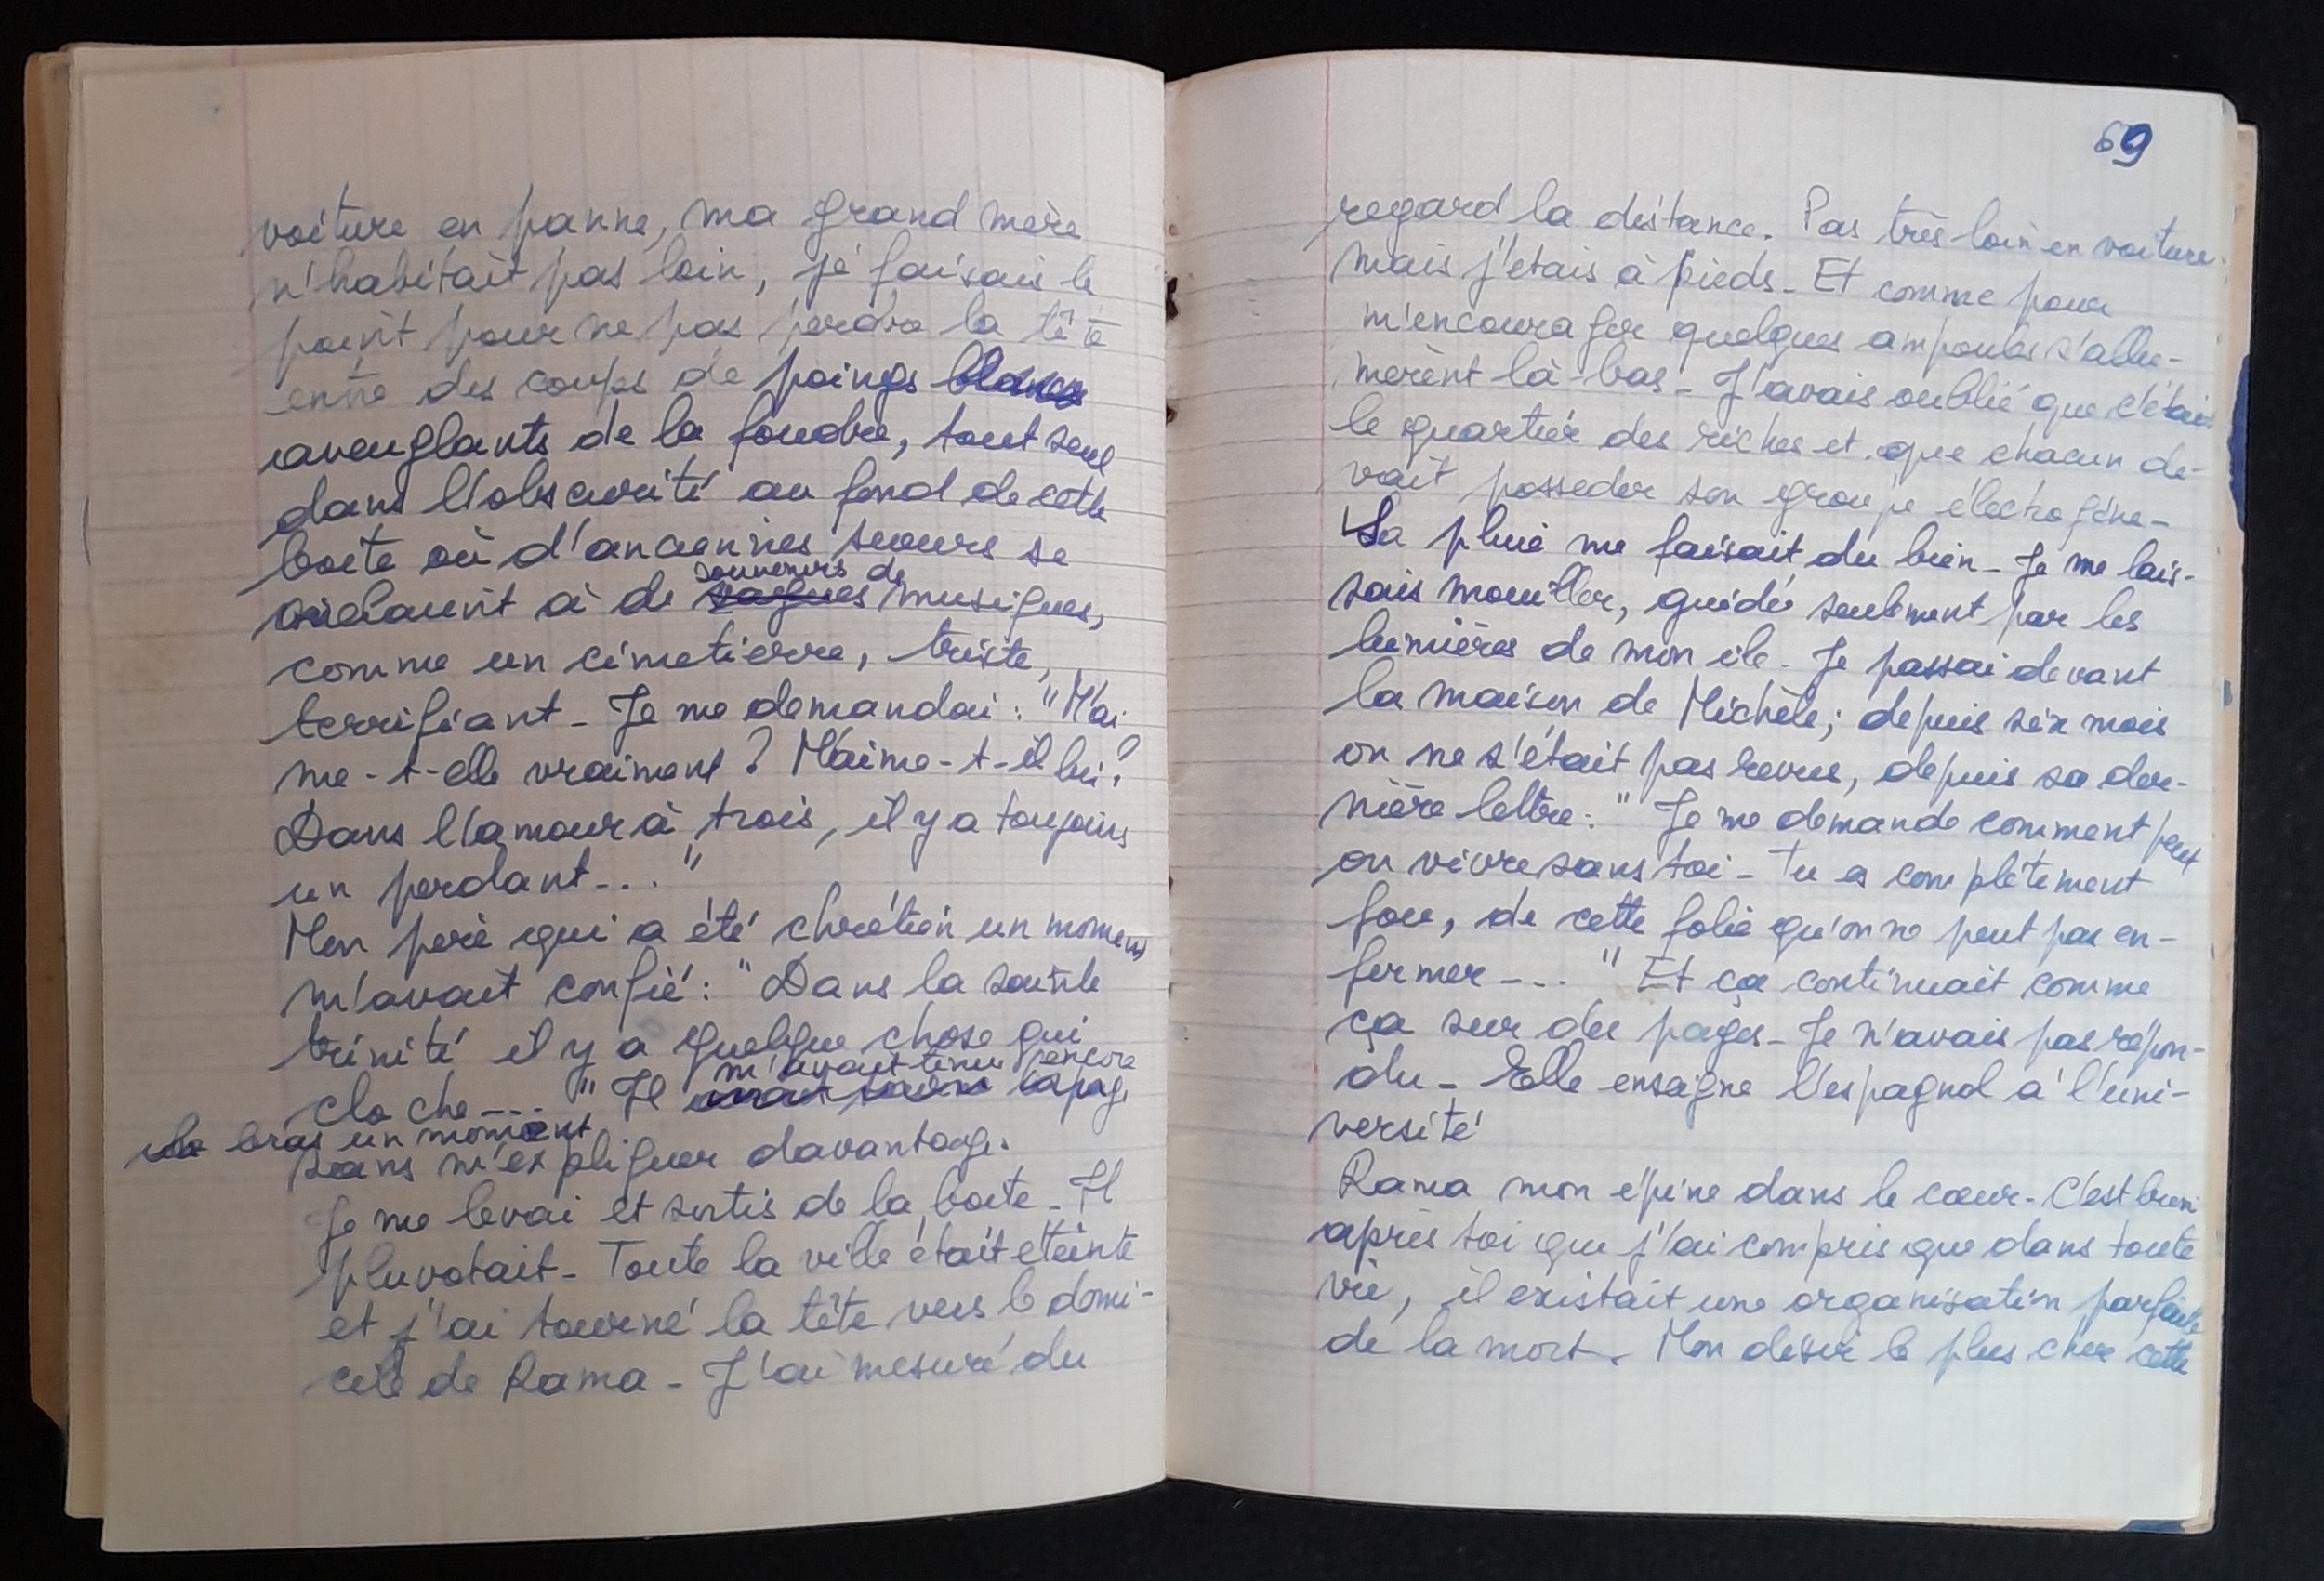 voiture en panne, ma grand mère
n'habitait pas loin, je faisais le
point pour ne pas perdre la tête
entre des coups de poings blancs
aveuglants de la foudre, tout seul
dans l'obscurité au fond de cette
boite où d'anciennes sueurs se
mêlaient à de vagues musiques,
souvenirs de
comme un cimetierre, triste,
terrifiant - Je me demandai : "M'ai
me-t-elle vraiment ? M'aime-t-il lui ?
Dans l'amour à trois, il y a toujours
un perdant... "
Mon père qui a été chrétien un moment
m'avait confié : "Dans la sainte
trinité il y a quelque chose qui
m'avait tenu encore
cloche.... " Il
le bras un moment
sans m'expliquer davantage.
Je me levai et sortis de la boite - Il
pluvotait - Toute la ville était éteinte
et j'ai tourné la tête vers le domi-
cile de Rama - J'ai mesuré du
69
regard la distance. Pas très loin en voiture
mais j'étais à pieds - Et comme pour
m'encourager quelques ampoules s'allu-
mèrent là-bas - J'avais oublié que c'était
le quartier des riches et que chacun de-
vait posseder son groupe électrogène -
La pluie me faisait du bien - Je me lais-
sais mouiller, guidé seulement par les
lumières de mon île - Je passai devant
la maison de Michèle ; depuis six mois
on ne s'était pas revus, depuis sa der-
nière lettre : " Je me demande comment peut
on vivre sans toi - Tu es complètement
fou, de cette folie qu'on ne peut pas en-
fermer -... " Et ça continuait comme
ça sur des pages - Je n'avais pas répon-
du - Elle enseigne l'espagnol à l'uni-
versité
Rama mon épine dans le cœur - C'est bien
après toi que j'ai compris que dans toute
vie, il existait une organisation parfaite
de la mort. Mon désir le plus cher cette